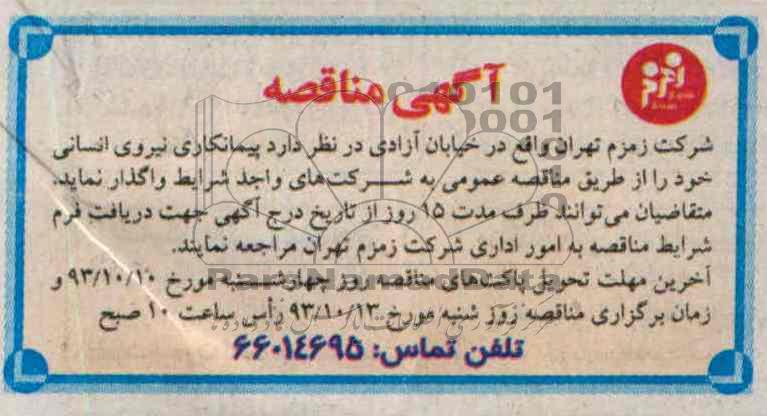 آگهی مناقصه
شرکت زمزم تهران واقع در خیابان آزادی در نظر دارد پیمانکاری نیروی انسانی
خود را از طریق مناقصه عمومی به شرکت‌های واجد شرایط واگذار نماید.
متقاضیان می‌توانند ظرف مدت ۱۵ روز از تاریخ درج آگهی جهت دریافت فرم
شرایط مناقصه به امور اداری شرکت زمزم تهران مراجعه نمایند.
آخرین مهلت تحویل پاکت‌های مناقصه روز چهارشنبه مورخ ۹۳/۱۰/۱۰ و
زمان برگزاری مناقصه روز شنبه مورخ ۹۳/۱۰/۱۳ رأس ساعت ۱۰ صبح
تلفن تماس: ۶۶۰۱۴۶۹۵
ParsNamadData